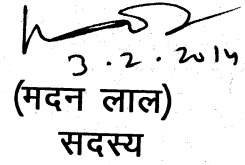 3.2.2014
(मदन लाल)
सदस्य